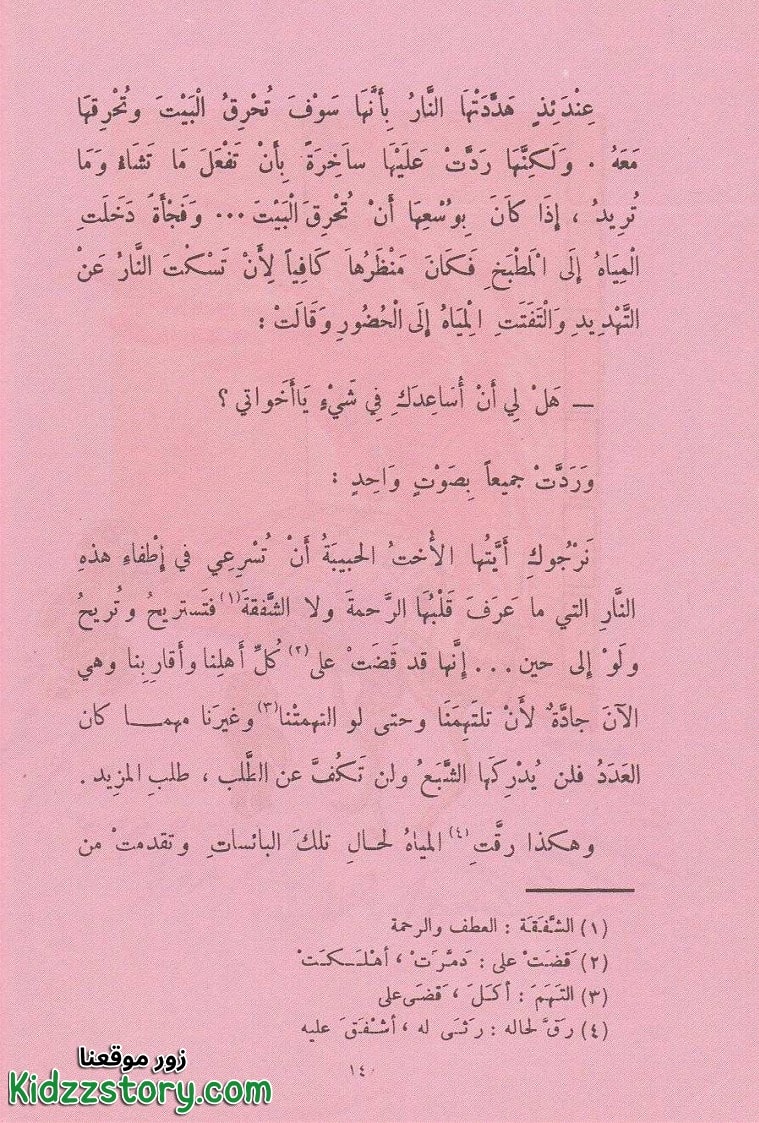 عِنْدَئِذٍ هَدَّدَتْهَا النَّارُ بِأَنَّهَا سَوْفَ تُحْرِقُ الْبَيْتَ وتُحْرِقِهَا
مَعَهُ . وَلَكِنَّهَا رَدَّتْ عَلَيْهَا سَاخِرَةً بِأَنْ تَفْعَلَ مَا تَشَاءُ وَمَا
تُرِيدُ ، إِذَا كَانَ بِوُسْعِهَا أَنْ تُحْرِقَ الْبَيْتَ ... وَفَجْأَةً دَخَلَتِ
الْمِيَاهُ إِلَى الْمَطْبَخِ فَكَانَ مَنْظَرُهَا كَافِياً لِأَنْ تَسْكُتَ النَّارُ عَنْ
التَّهْدِيدِ وَالْتَفَتَتِ الْمِيَاهُ إِلَى الْحُضُورِ وَقَالَتْ :
ــ هَلْ لِي أَنْ أُسَاعِدَكِ فِي شَيْءٍ يَاأَخَوَاتي ؟
وَرَدَّتْ جميعاً بِصَوْتٍ وَاحِدٍ :
نَرْجُوكِ أَيَّتُها الأُختُ الحبيبَةُ أَنْ تُسْرِعِي في إِطْفاءِ هذهِ
النَّارِ التي ما عَرَفَ قَلْبُهَا الرَّحمةَ ولا الشَّفقةَ (١) فتَستريحُ وتُريحُ
ولَوْ إلى حين ... إنَّها قد قَضَتْ على (٢) كُلِّ أهلِنا وأقارِبِنا وهي
الآنَ جادَّةٌ لأَنْ تلتَهِمَنَا وحتى لو التهمتْنا (٣) وغيرَنا مهمـــا كان
العَدَدُ فلن يُدْرِكَها الشَّبَعُ ولن تَكُفَّ عن الطَّلب ، طلبِ المزيد .
وهكذا رقَّتِ (٤) المياهُ لحـالِ تلكَ البائساتِ وتقدمتْ من
(١) الشَّفَقَة : العطف والرحمة
(٢) قَضَتْ على : دَمَّرَتْ ، أهْلَـكَتْ
(٣) التَهَمَ : أكَلَ ، قَضَى على
(٤) رَقَّ لحاله : رَثَى له ، أشْفَقَ عليه
١٤٠
زور موقعنا
Kidzzstory.com